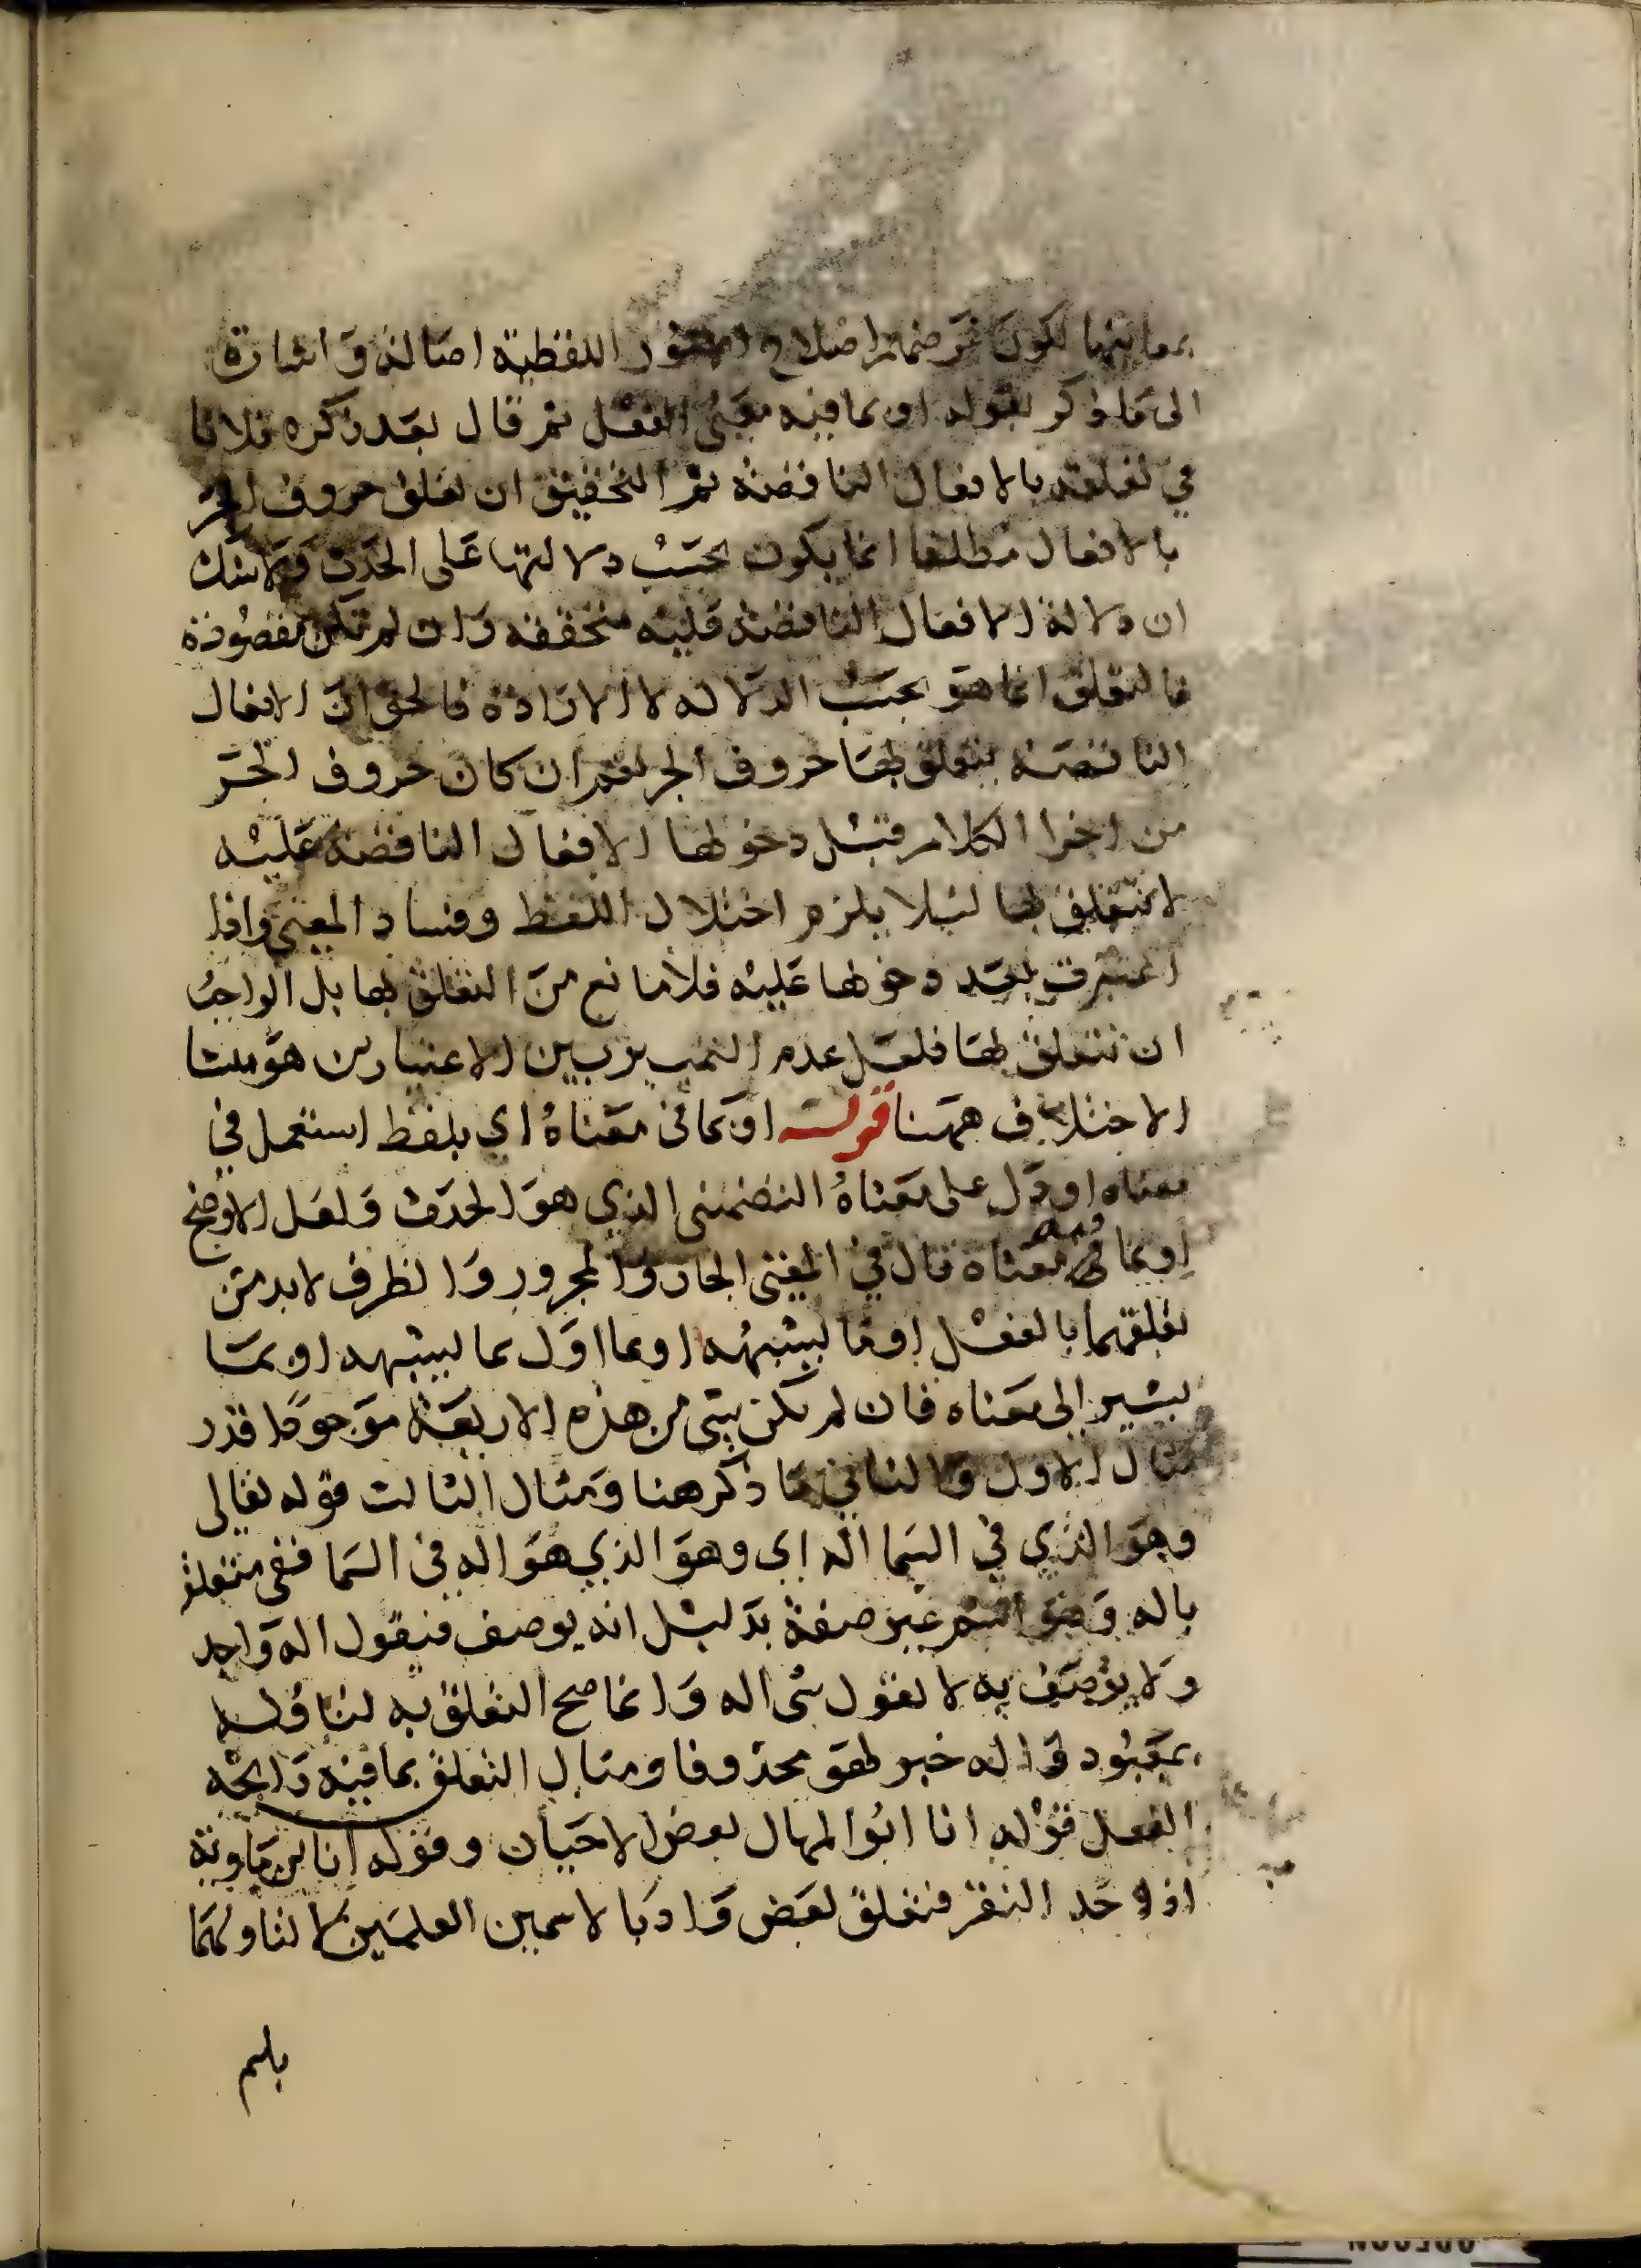 بمعانيها لكون غرضهم اصلاح الامور اللفظية اصالة واشارة
الى ما ذكر بقوله او بما فيه معنى الفعل ثم قال بعد ذكره خلافا
في تعلقه بالافعال الناقصة ثم التحقيق ان تعلق حروف الجر
بالافعال مطلقا انما يكون بحسب دلالتها على الحدث ولا شك
ان دلالة الافعال الناقصة عليه متحققه وان لم تكن مقصودة
فالتعلق انما هو بحسب الدلاله لا الارادة فالحق ان الافعال
الناقصة يتعلق بها حروف الجر نعم ان كان حروف الجر
من اجزا الكلام قبل دخولها الافعال الناقصة عليه
لا تتعلق بها ليلا يلزم اختلال اللفظ وفساد المعنى واذا
اعتبرت بعد دخولها عليه فلا مانع من التعلق بها بل الواجب
ان تتعلق بها فلعل عدم التمييز بين الاعتبارين هو منشا
الاختلاف ههنا قوله او بما في معناه اي بلفظ استعمل في
معناه او دل على معناه التضمني الذي هو الحدث ولعل الاوضح
او بما فيه معناه قال في المغني الجار والمجرور والظرف لا بد من
تعلقهما بالفعل او ما يشبهه او بما اول بما يشبهه او بما
يشير الى معناه فان لم يكن شي من هذه الاربعة موجودا قدر
مثال الاول والثاني ما ذكر هنا ومثال الثالث قوله تعالى
وهو الذي في السما اله اي وهو الذي هو اله في السما ففي متعلق
باله وهو اسم غير صفة بدليل انه يوصف فتقول اله واحد
ولا يوصف به لا تقول شى اله وانما صح التعلق به لتاوله
بمعبود واله خبر لهو محذوفا ومثال التعلق بما فيه رايحه
الفعل قوله انا ابو المهال بعض الاحيان وقوله انا ابن ماوية
اذ جد النقر فتعلق بعض واذ بالاسمين العلمين لا لتاولهما